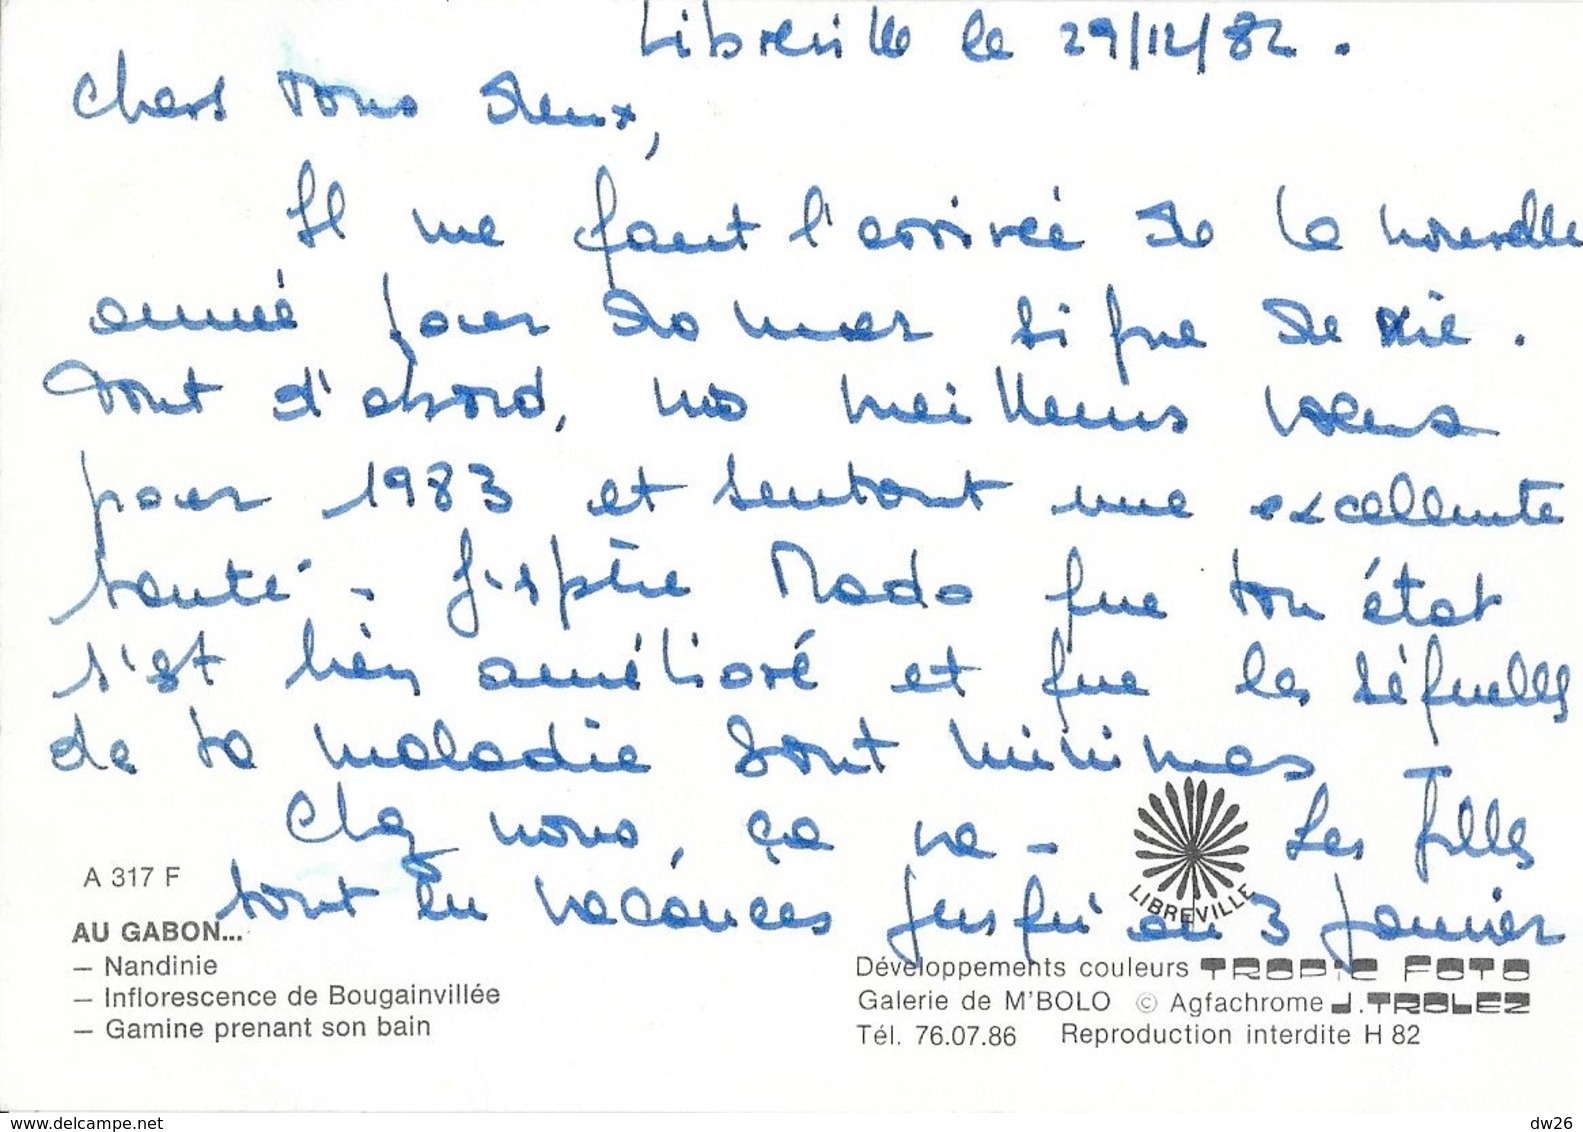 Libreville le 29/12/82.
Chers vous deux,
Il me faut l'arrivée de la nouvelle
année pour donner signe de vie.
Tout d'abord, nos meilleurs voeux
pour 1983 et surtout une excellente
santé - J'espère Mado que ton état
s'est bien amélioré et que les séquelles
de ta maladie sont minimes
Chez nous, ça va - Les filles
sont en vacances jusqu'au 3 janvier
LIBREVILLE
A 317 F
AU GABON...
— Nandinie
— Inflorescence de Bougainvillée
— Gamine prenant son bain
Développements couleurs TROPIC FOTO
Galerie de M'BOLO © Agfachrome J.TROLEZ
Tél. 76.07.86 Reproduction interdite H 82
www.delcampe.net
dw26